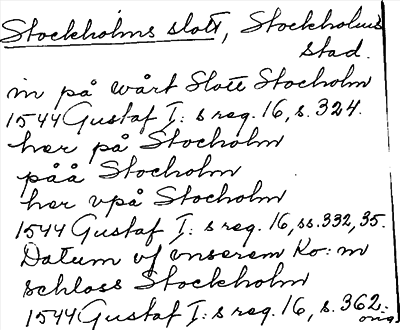 Stockholms slott, Stockholms
stad.
in på wårt Slott Stocholm
1544 Gustaf I: s reg. 16, s. 324.
her på Stocholm
påå Stocholm
her vpå Stocholm
1544 Gustaf I: s reg. 16, ss. 332, 35.
Datum vf vnserem Ko: n
schloss Stockholm
1544 Gustaf I: s reg. 16, s. 362.
orig.